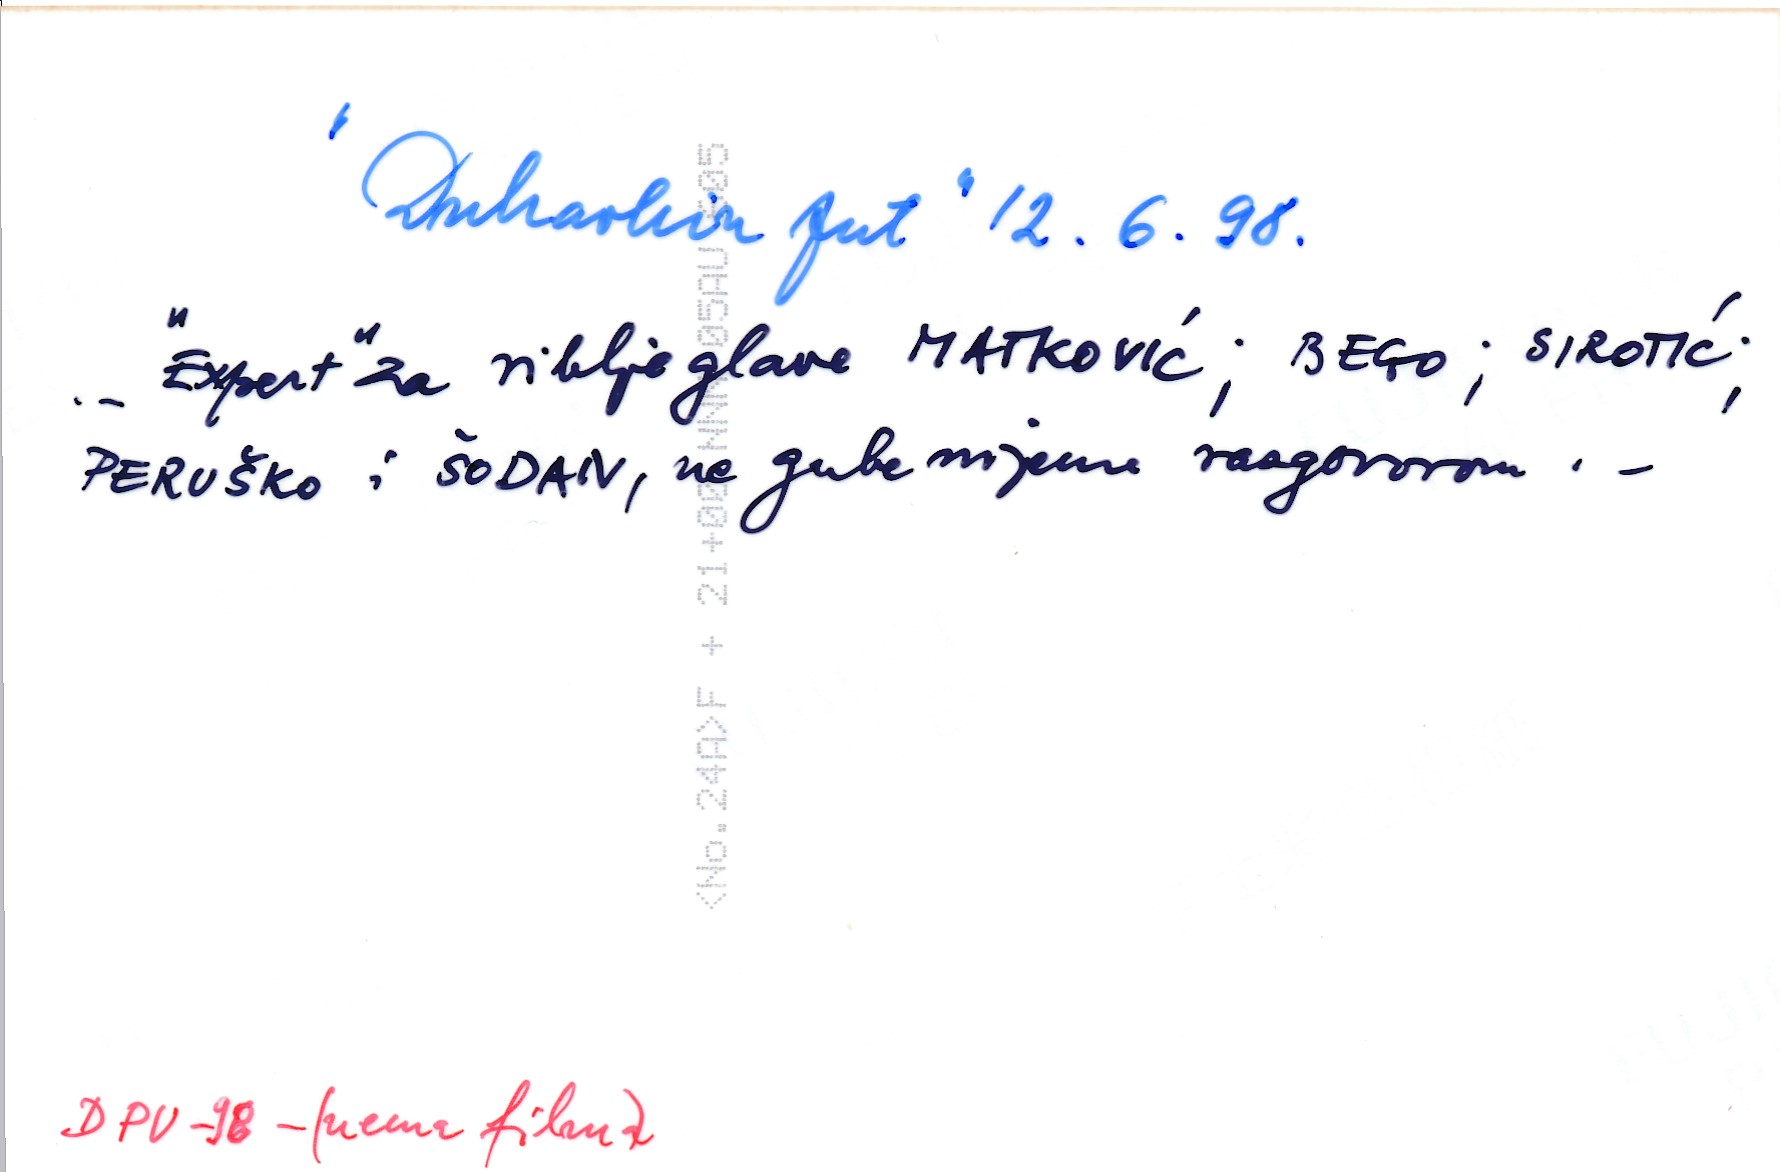 "Dubravkin put" 12.6.98.
.- "Expert" za riblje glave MATKOVIĆ; BEGO; SIROTIĆ;
PERUŠKO i ŠODAN, ne gube vrijeme razgovorom .-
<No.24A>F +
DPU-98 - (nema filma)